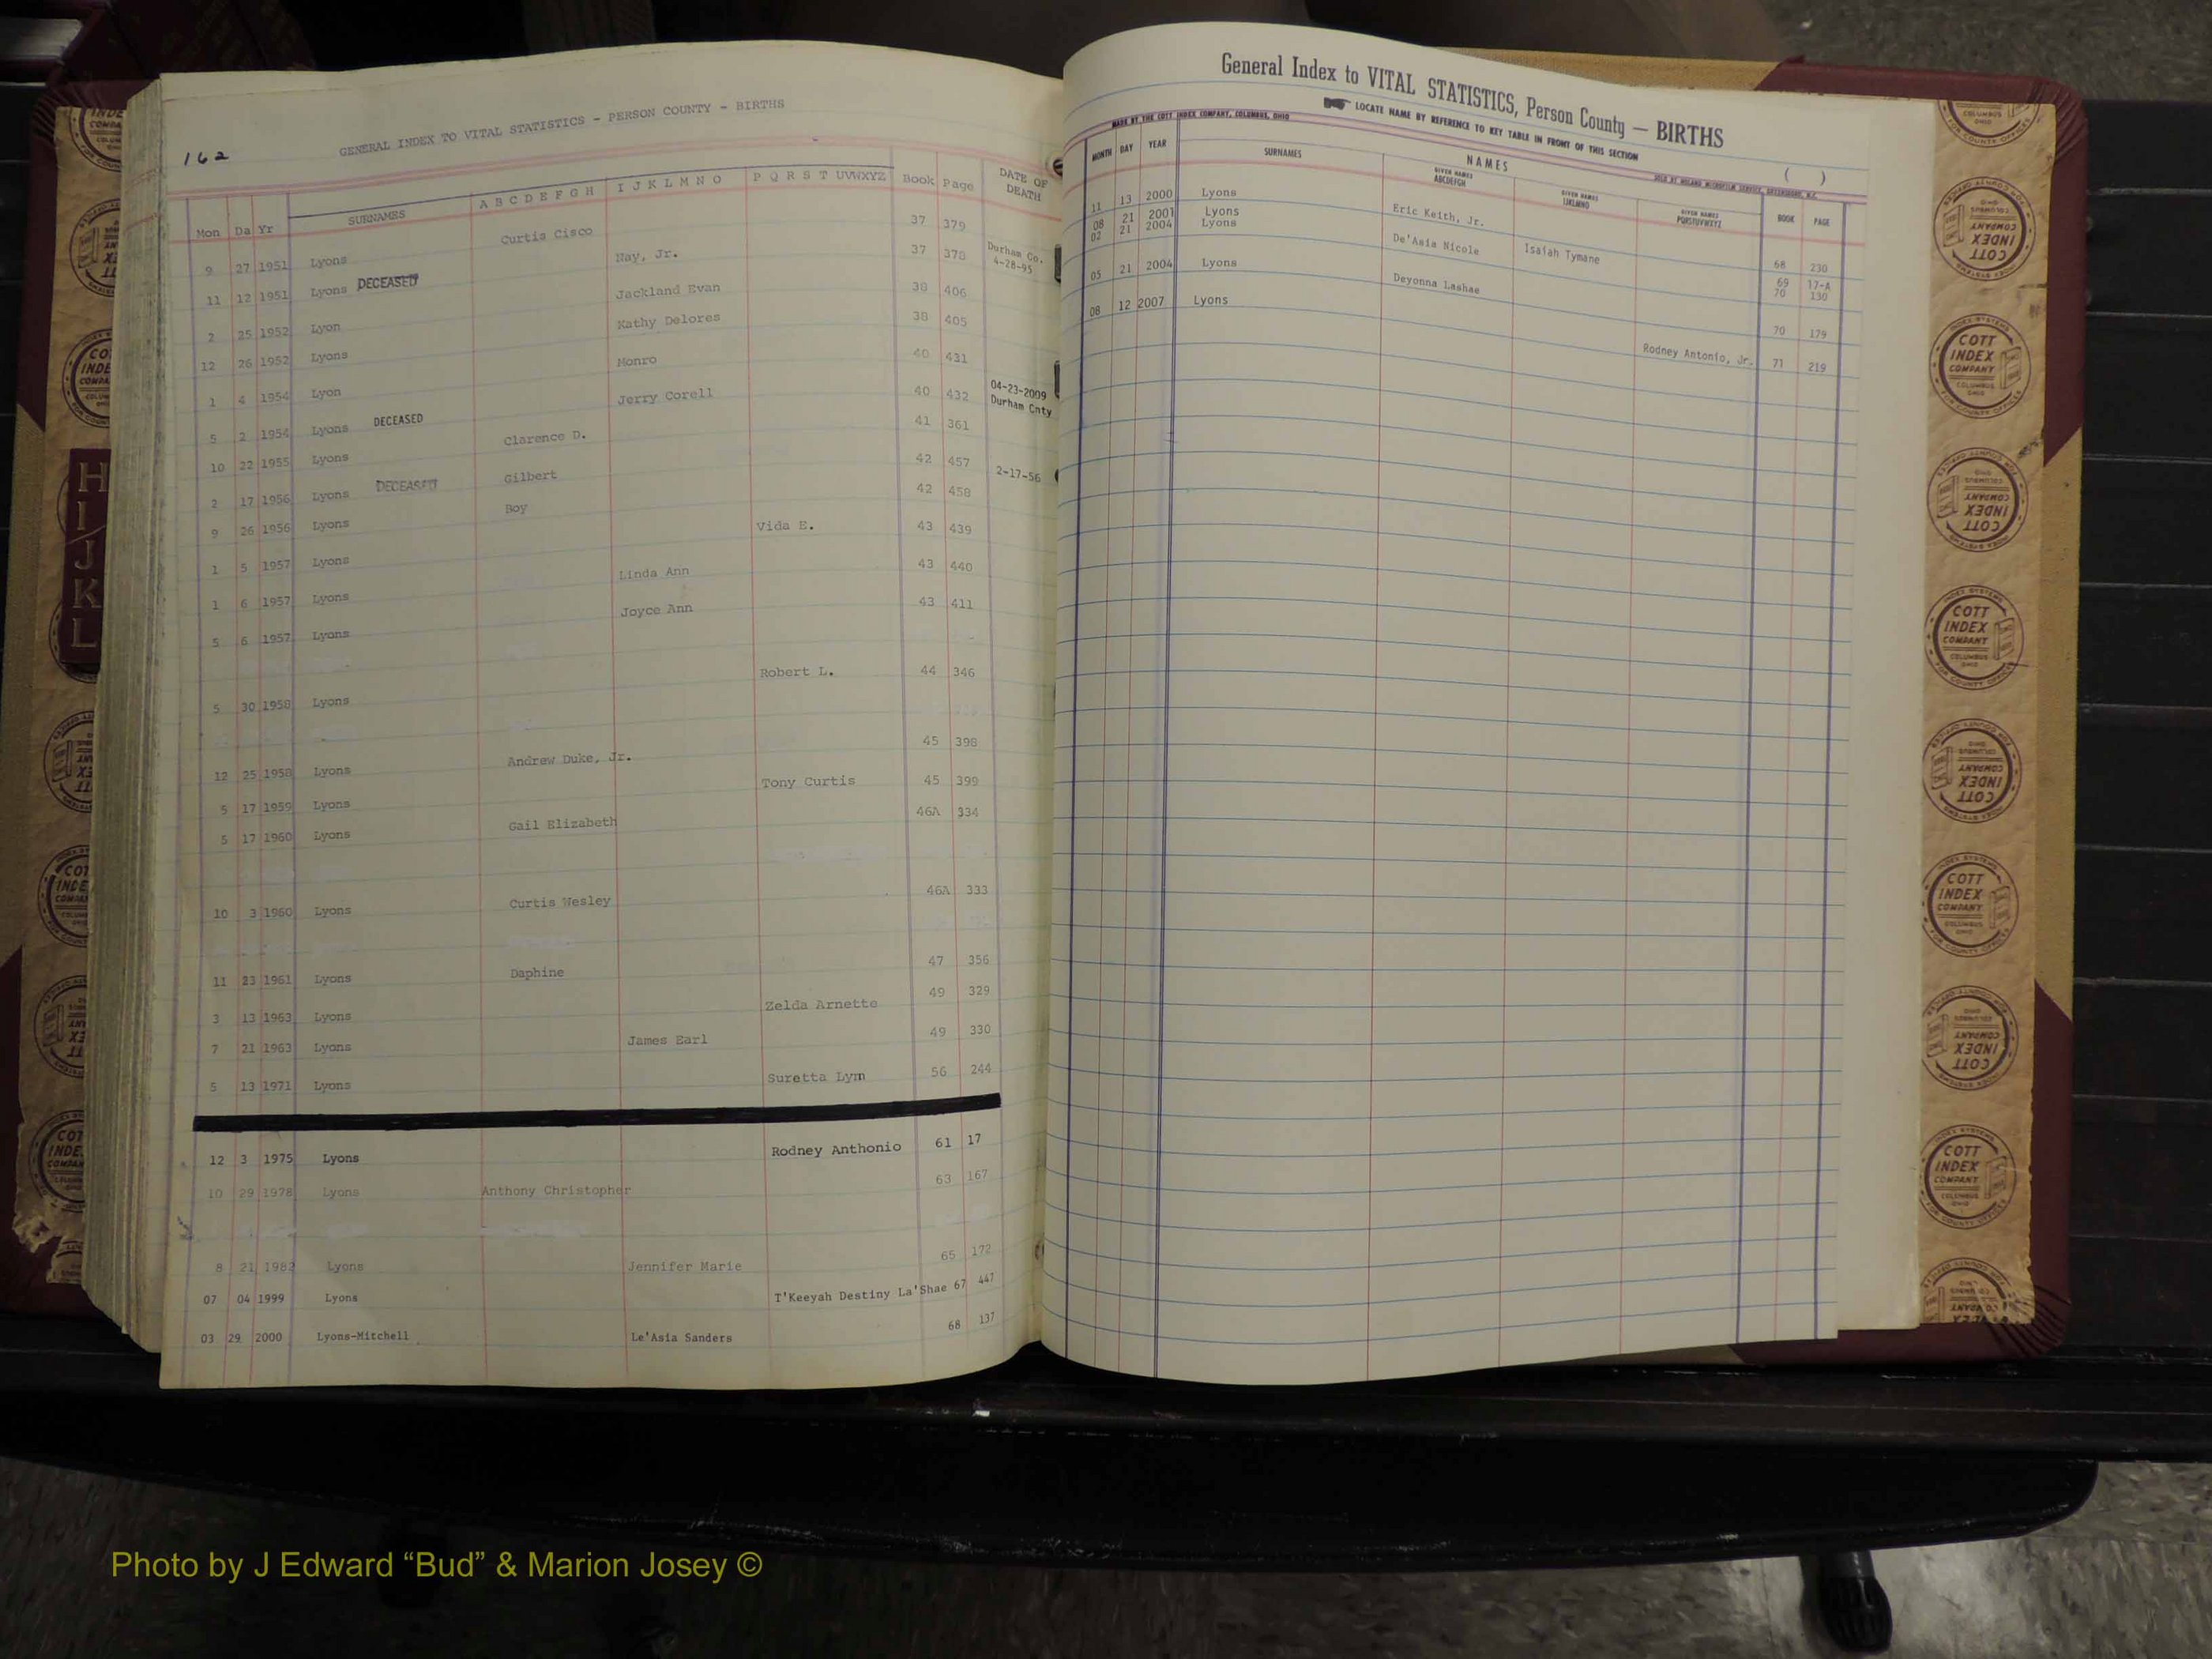 162
GENERAL INDEX TO VITAL STATISTICS - PERSON COUNTY - BIRTHS
Mon Da Yr SURNAMES A B C D E F G H I J K L M N O P Q R S T UVWXYZ Book Page DATE OF DEATH
9 27 1951 Lyons Curtis Cisco 37 379
11 12 1951 Lyons DECEASED May, Jr. 37 378 Durham Co. 4-28-95
2 25 1952 Lyon Jackland Evan 38 406
12 26 1952 Lyons Kathy Delores 38 405
1 4 1954 Lyon Monro 40 431
5 2 1954 Lyons DECEASED Jerry Corell 40 432 04-23-2009 Durham Cnty
10 22 1955 Lyons Clarence D. 41 361
2 17 1956 Lyons DECEASED Gilbert 42 457 2-17-56
9 26 1956 Lyons Boy 42 458
1 5 1957 Lyons Vida E. 43 439
1 6 1957 Lyons Linda Ann 43 440
5 6 1957 Lyons Joyce Ann 43 411
5 30 1958 Lyons Robert L. 44 346
12 25 1958 Lyons Andrew Duke, Jr. 45 398
5 17 1959 Lyons Tony Curtis 45 399
5 17 1960 Lyons Gail Elizabeth 46A 334
10 3 1960 Lyons Curtis Wesley 46A 333
11 23 1961 Lyons Daphine 47 356
3 13 1963 Lyons Zelda Arnette 49 329
7 21 1963 Lyons James Earl 49 330
5 13 1971 Lyons Suretta Lym 56 244
12 3 1975 Lyons Rodney Anthonio 61 17
10 29 1978 Lyons Anthony Christopher 63 167
8 21 1982 Lyons Jennifer Marie 65 172
07 04 1999 Lyons T'Keeyah Destiny La'Shae 67 447
03 29 2000 Lyons-Mitchell Le'Asia Sanders 68 137
General Index to VITAL STATISTICS, Person County — BIRTHS
LOCATE NAME BY REFERENCE TO KEY TABLE IN FRONT OF THIS SECTION
MADE BY THE COTT INDEX COMPANY, COLUMBUS, OHIO
( )
MONTH DAY YEAR SURNAMES NAMES GIVEN NAMES ABCDEFGH GIVEN NAMES IJKLMNO GIVEN NAMES PQRSTUVWXYZ BOOK PAGE
11 13 2000 Lyons Eric Keith, Jr. 68 230
08 21 2001 Lyons Isaiah Tymane 69 17-A
02 21 2004 Lyons De'Asia Nicole 70 130
05 21 2004 Lyons Deyonna Lashae 70 179
08 12 2007 Lyons Rodney Antonio, Jr. 71 219
H
I
J
K
L
COTT INDEX COMPANY COLUMBUS OHIO
INDEX SYSTEMS FOR COUNTY OFFICES
Photo by J Edward “Bud” & Marion Josey ©